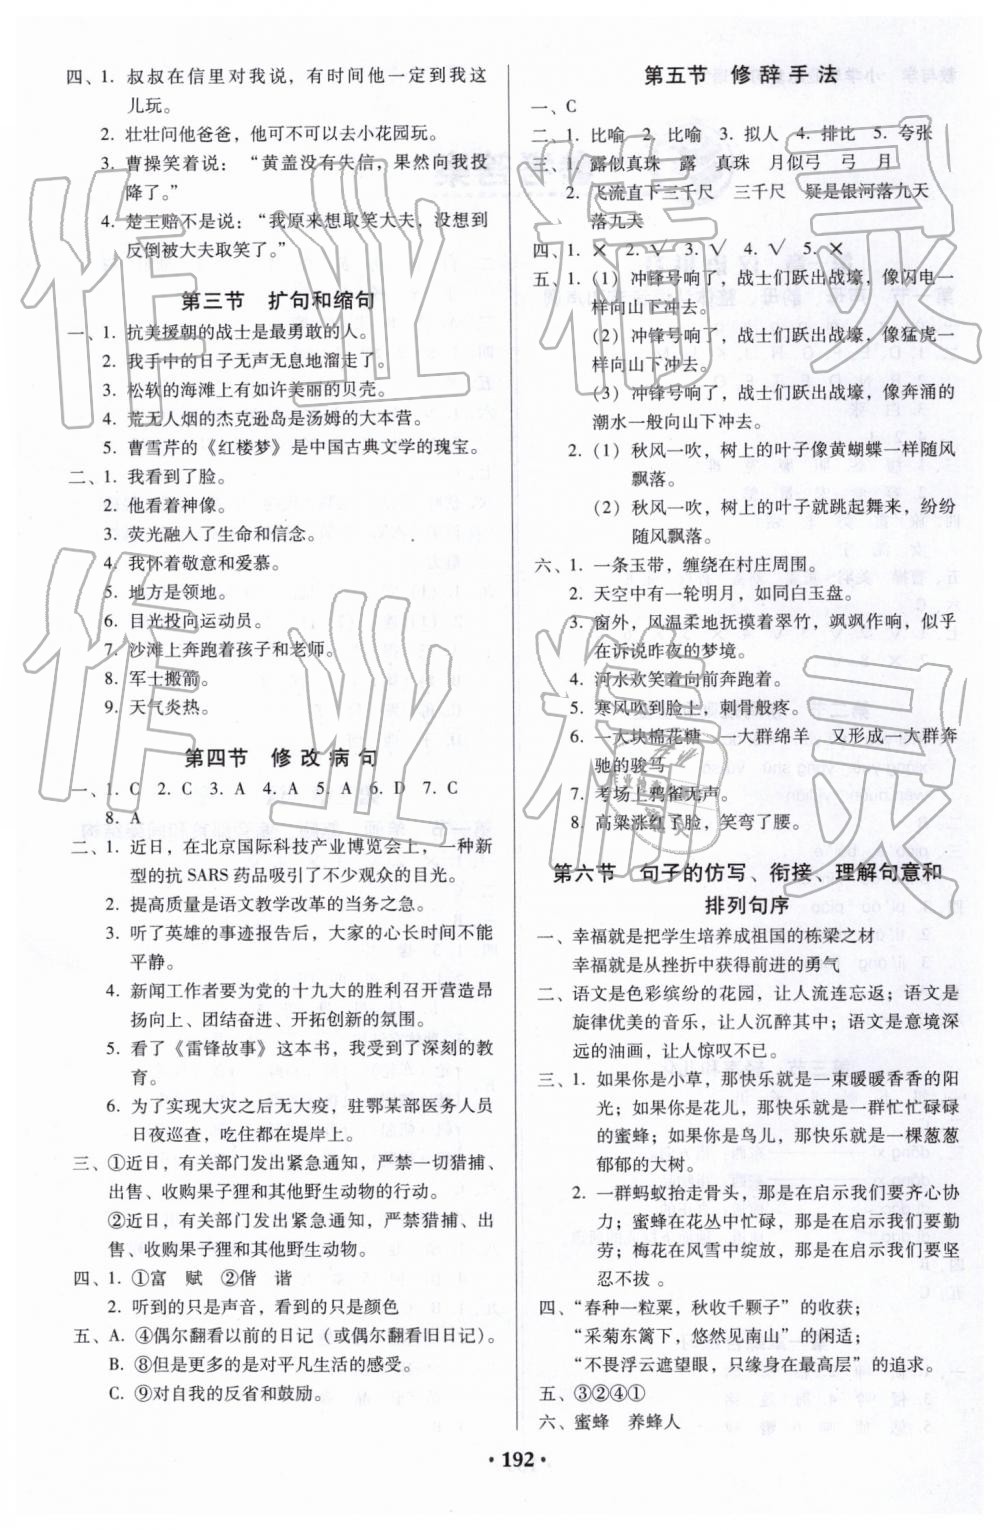 四、1. 叔叔在信里对我说，有时间他一定到我这
儿玩。
2. 壮壮问他爸爸，他可不可以去小花园玩。
3. 曹操笑着说：“黄盖没有失信，果然向我投
降了。”
4. 楚王赔不是说：“我原来想取笑大夫，没想到
反倒被大夫取笑了。”
第三节　扩句和缩句
一、1. 抗美援朝的战士是最勇敢的人。
2. 我手中的日子无声无息地溜走了。
3. 松软的海滩上有如许美丽的贝壳。
4. 荒无人烟的杰克逊岛是汤姆的大本营。
5. 曹雪芹的《红楼梦》是中国古典文学的瑰宝。
二、1. 我看到了脸。
2. 他看着神像。
3. 荧光融入了生命和信念。
4. 我怀着敬意和爱慕。
5. 地方是领地。
6. 目光投向运动员。
7. 沙滩上奔跑着孩子和老师。
8. 军士搬箭。
9. 天气炎热。
第四节　修改病句
一、1. C　2. C　3. A　4. A　5. A　6. D　7. C
8. A
二、1. 近日，在北京国际科技产业博览会上，一种新
型的抗SARS药品吸引了不少观众的目光。
2. 提高质量是语文教学改革的当务之急。
3. 听了英雄的事迹报告后，大家的心长时间不能
平静。
4. 新闻工作者要为党的十九大的胜利召开营造昂
扬向上、团结奋进、开拓创新的氛围。
5. 看了《雷锋故事》这本书，我受到了深刻的教
育。
6. 为了实现大灾之后无大疫，驻鄂某部医务人员
日夜巡查，吃住都在堤岸上。
三、①近日，有关部门发出紧急通知，严禁一切猎捕、
出售、收购果子狸和其他野生动物的行动。
②近日，有关部门发出紧急通知，严禁猎捕、出
售、收购果子狸和其他野生动物。
四、1. ①富　赋　②偕　谐
2. 听到的只是声音，看到的只是颜色
五、A. ④偶尔翻看以前的日记（或偶尔翻看旧日记）。
B. ⑧但是更多的是对平凡生活的感受。
C. ⑨对自我的反省和鼓励。
第五节　修辞手法
一、C
二、1. 比喻　2. 比喻　3. 拟人　4. 排比　5. 夸张
三、1. 露似真珠　露　真珠　月似弓　弓　月
2. 飞流直下三千尺　三千尺　疑是银河落九天
落九天
四、1. ×　2. √　3. √　4. √　5. ×
五、1.（1）冲锋号响了，战士们跃出战壕，像闪电一
样向山下冲去。
（2）冲锋号响了，战士们跃出战壕，像猛虎一
样向山下冲去。
（3）冲锋号响了，战士们跃出战壕，像奔涌的
潮水一般向山下冲去。
2.（1）秋风一吹，树上的叶子像黄蝴蝶一样随风
飘落。
（2）秋风一吹，树上的叶子就跳起舞来，纷纷
随风飘落。
六、1. 一条玉带，缠绕在村庄周围。
2. 天空中有一轮明月，如同白玉盘。
3. 窗外，风温柔地抚摸着翠竹，飒飒作响，似乎
在诉说昨夜的梦境。
4. 河水欢笑着向前奔跑着。
5. 寒风吹到脸上，刺骨般疼。
6. 一大块棉花糖　一大群绵羊　又形成一大群奔
驰的骏马
7. 考场上鸦雀无声。
8. 高粱涨红了脸，笑弯了腰。
第六节　句子的仿写、衔接、理解句意和
排列句序
一、幸福就是把学生培养成祖国的栋梁之材
幸福就是从挫折中获得前进的勇气
二、语文是色彩缤纷的花园，让人流连忘返；语文是
旋律优美的音乐，让人沉醉其中；语文是意境深
远的油画，让人惊叹不已。
三、1. 如果你是小草，那快乐就是一束暖暖香香的阳
光；如果你是花儿，那快乐就是一群忙忙碌碌
的蜜蜂；如果你是鸟儿，那快乐就是一棵葱葱
郁郁的大树。
2. 一群蚂蚁抬走骨头，那是在启示我们要齐心协
力；蜜蜂在花丛中忙碌，那是在启示我们要勤
劳；梅花在风雪中绽放，那是在启示我们要坚
忍不拔 。
四、“春种一粒粟，秋收千颗子”的收获；
“采菊东篱下，悠然见南山”的闲适；
“不畏浮云遮望眼，只缘身在最高层”的追求。
五、③②④①
六、蜜蜂　养蜂人
• 192 •
作业精灵
作业精灵